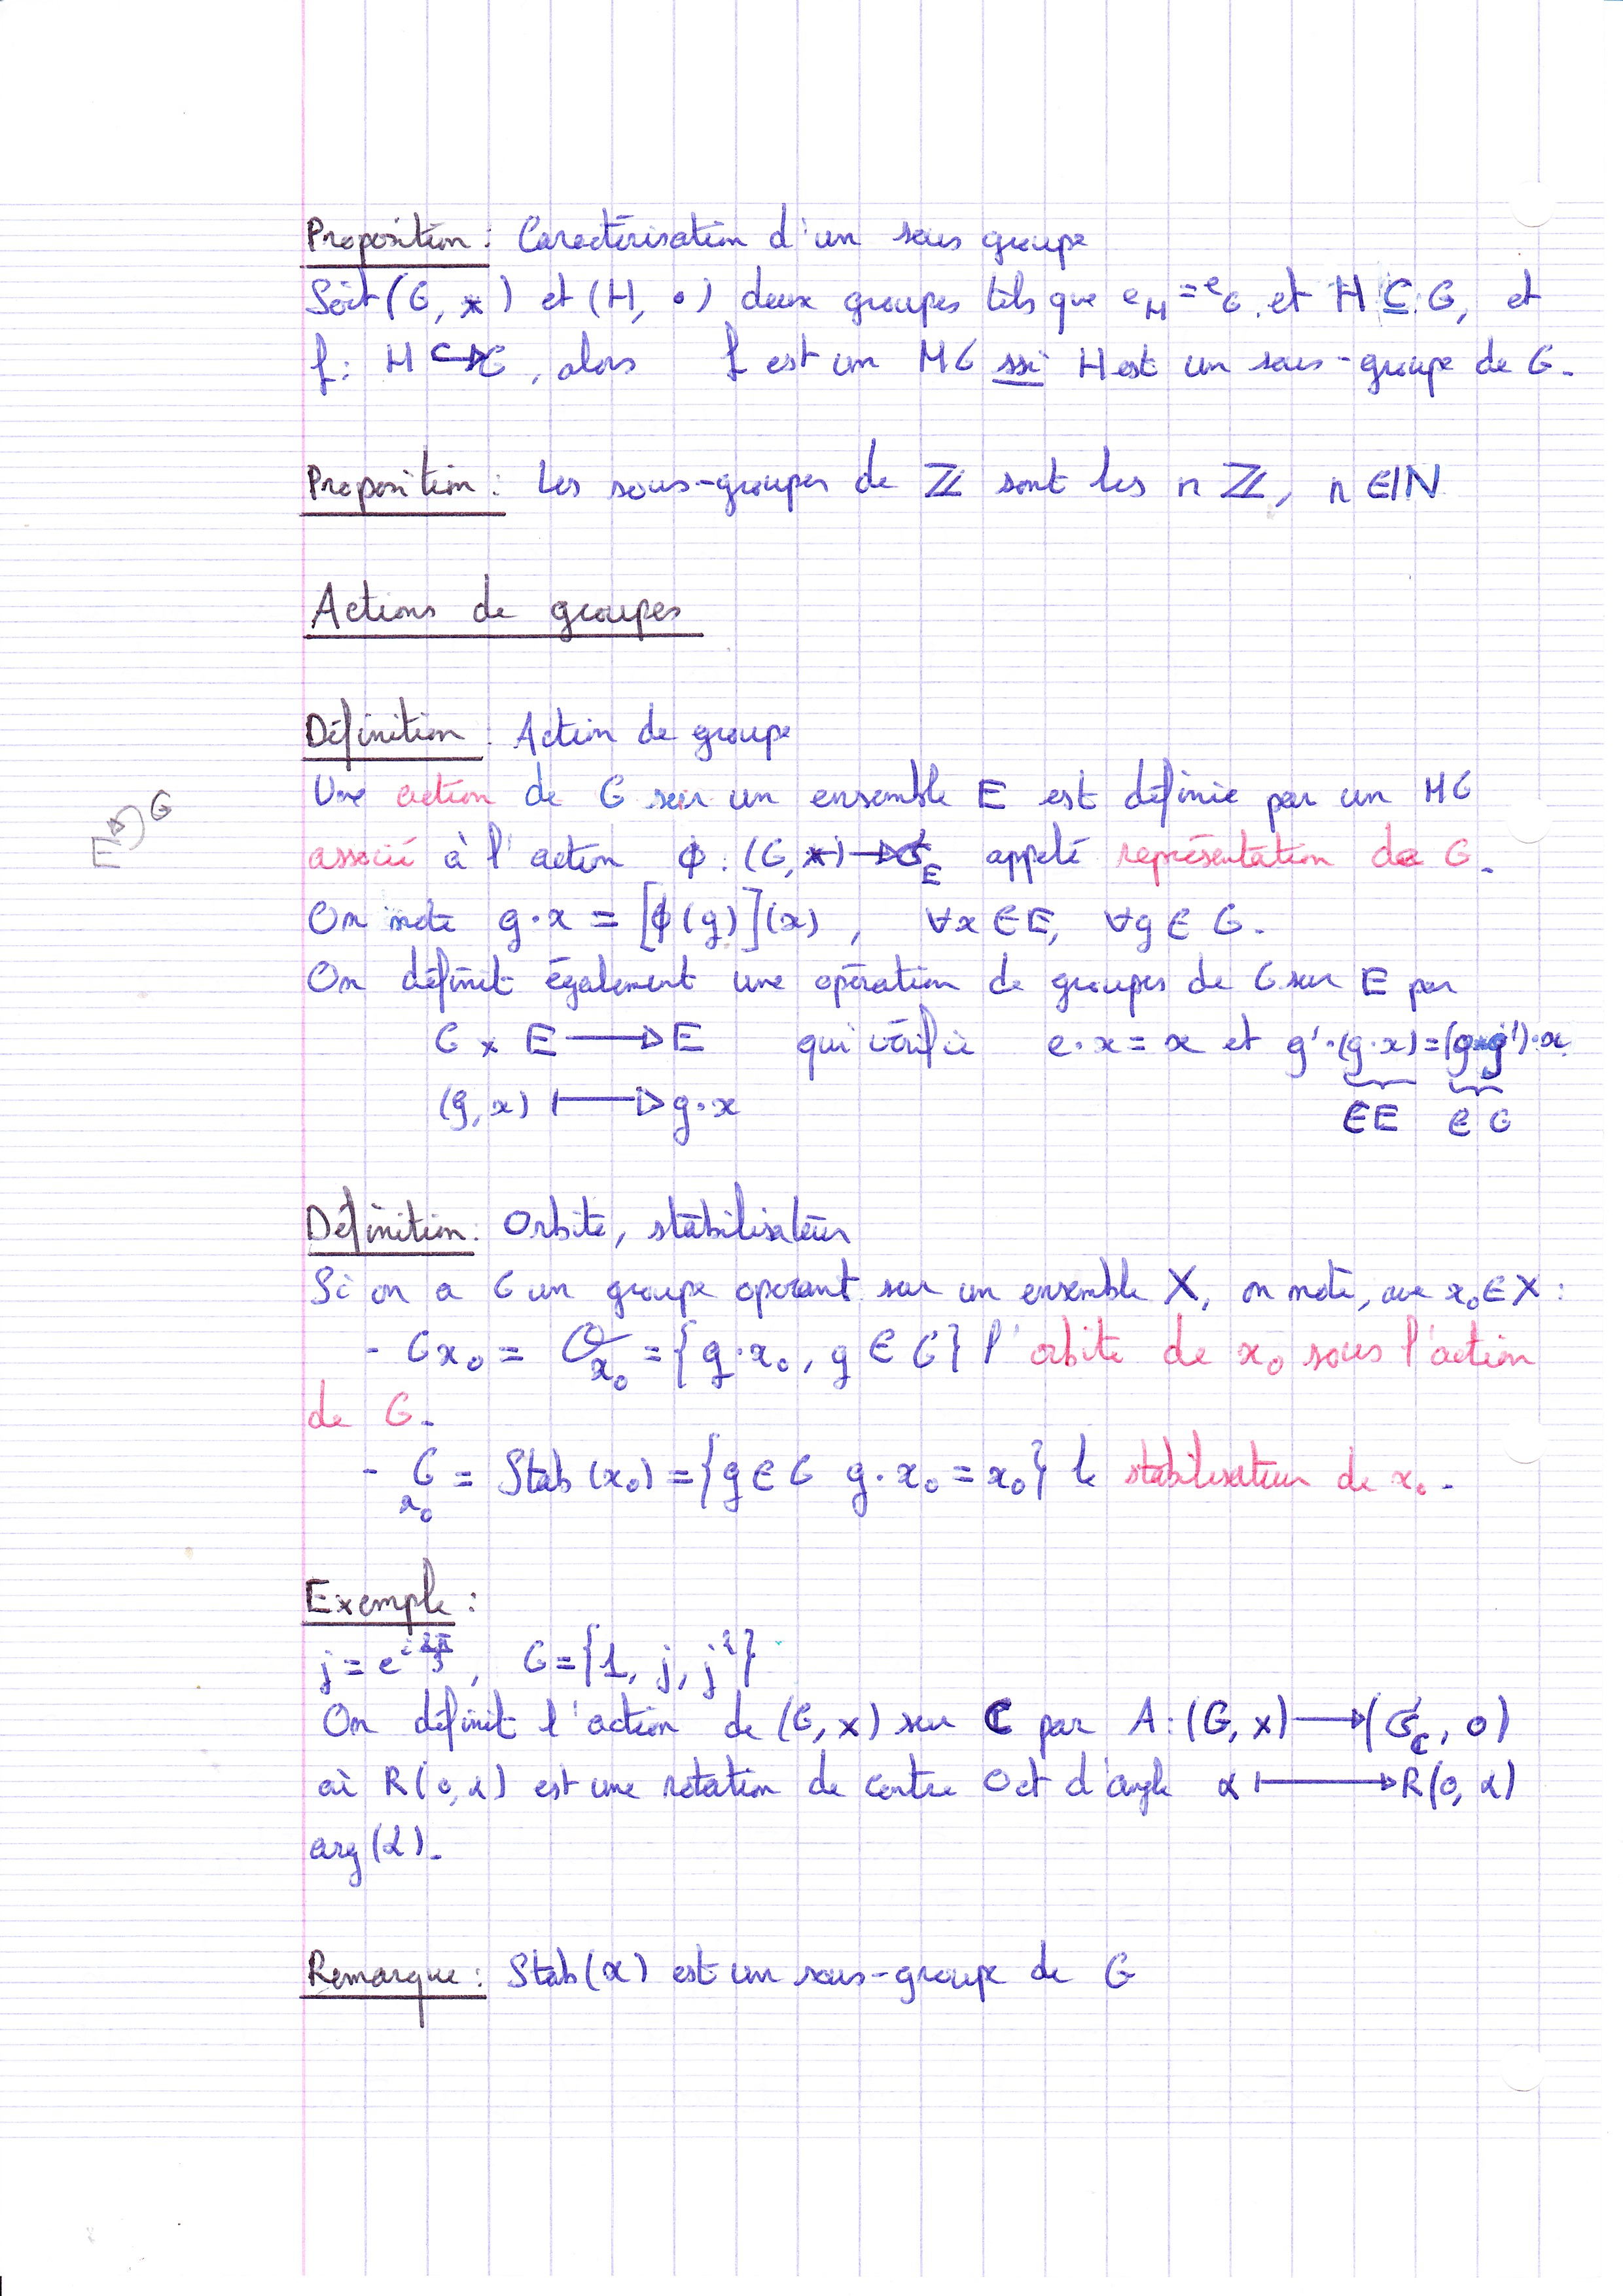 Proposition : Caractérisation d'un sous groupe
Soit (G, *) et (H, •) deux groupes tels que e_H = e_G et H ⊆ G, et
f : H ↪ G, alors f est un MG ssi H est un sous-groupe de G.
Proposition : Les sous-groupes de ℤ sont les nℤ, n ∈ ℕ
Actions de groupes
Définition : Action de groupe
Une action de G sur un ensemble E est définie par un MG
E G
associé à l'action ϕ : (G, *) → 𝔖_E appelé représentation de G.
On note g·x = [ϕ(g)](x), ∀x ∈ E, ∀g ∈ G.
On définit également une opération de groupes de G sur E par
G × E → E qui vérifie e·x = x et g'·(g·x) = (g*g')·x
(g, x) ↦ g·x ∈E ∈G
Définition : Orbite, stabilisateur
Si on a G un groupe operant sur un ensemble X, on note, avec x₀ ∈ X :
- Gx₀ = 𝒪_x₀ = {g·x₀, g ∈ G} l'orbite de x₀ sous l'action
de G.
- G_x₀ = Stab(x₀) = {g ∈ G g·x₀ = x₀} le stabilisateur de x₀.
Exemple :
j = e^{i2π/3}, G = {1, j, j²}
On définit l'action de (G, ×) sur ℂ par A : (G, ×) → (𝔖_ℂ, o)
où R(0, α) est une rotation de centre O et d'angle α ↦ R(0, α)
arg(α).
Remarque : Stab(x) est un sous-groupe de G